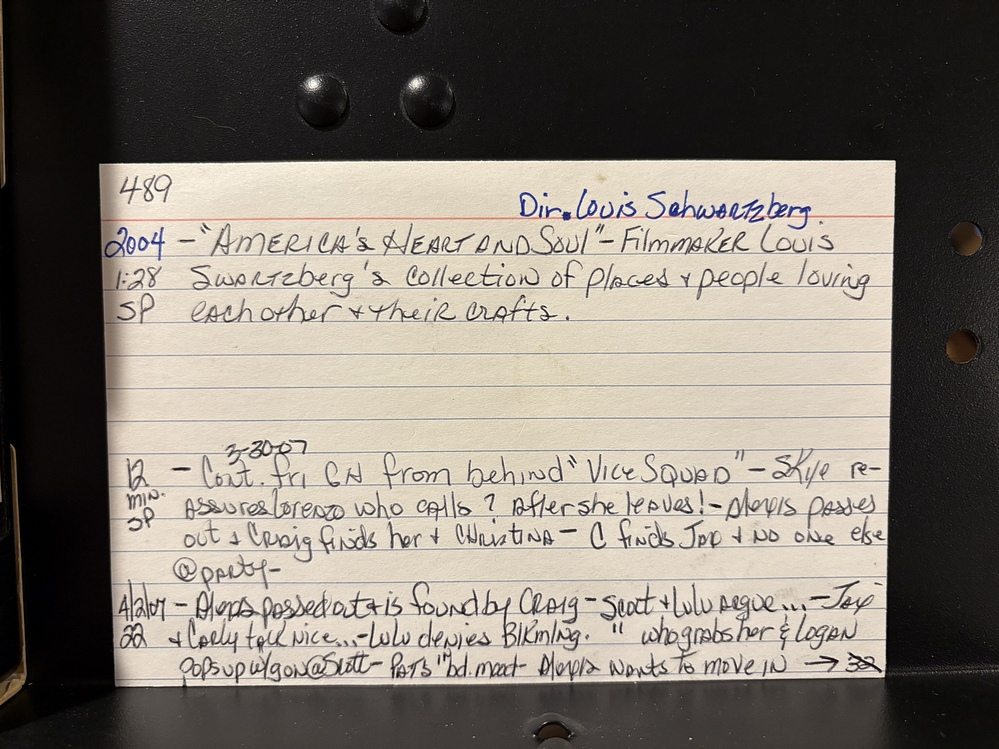 489
Dir. Louis Schwartzberg.
2004 - "America's Heart and Soul" - Filmmaker Louis
1:28 Swartzberg's collection of places + people loving
SP each other + their crafts.
3-30-07
12 - Cont. fri GH from behind "Vice Squad" - Skye re-
min. assures Lorenzo who calls? After she leaves! - Alexis passes
SP out + Craig finds her + Christina - C finds Jax + no one else
@ party -
4/2/07 - Alexis passed out + is found by Craig - Scott + Lulu argue... - Jax
22 + Carly talk nice... - Lulu denies Blkmlng. " who grabs her & Logan
pops up w/gon @ Scott - Pat's 1st bd. meet - Alexis wants to move in → 32